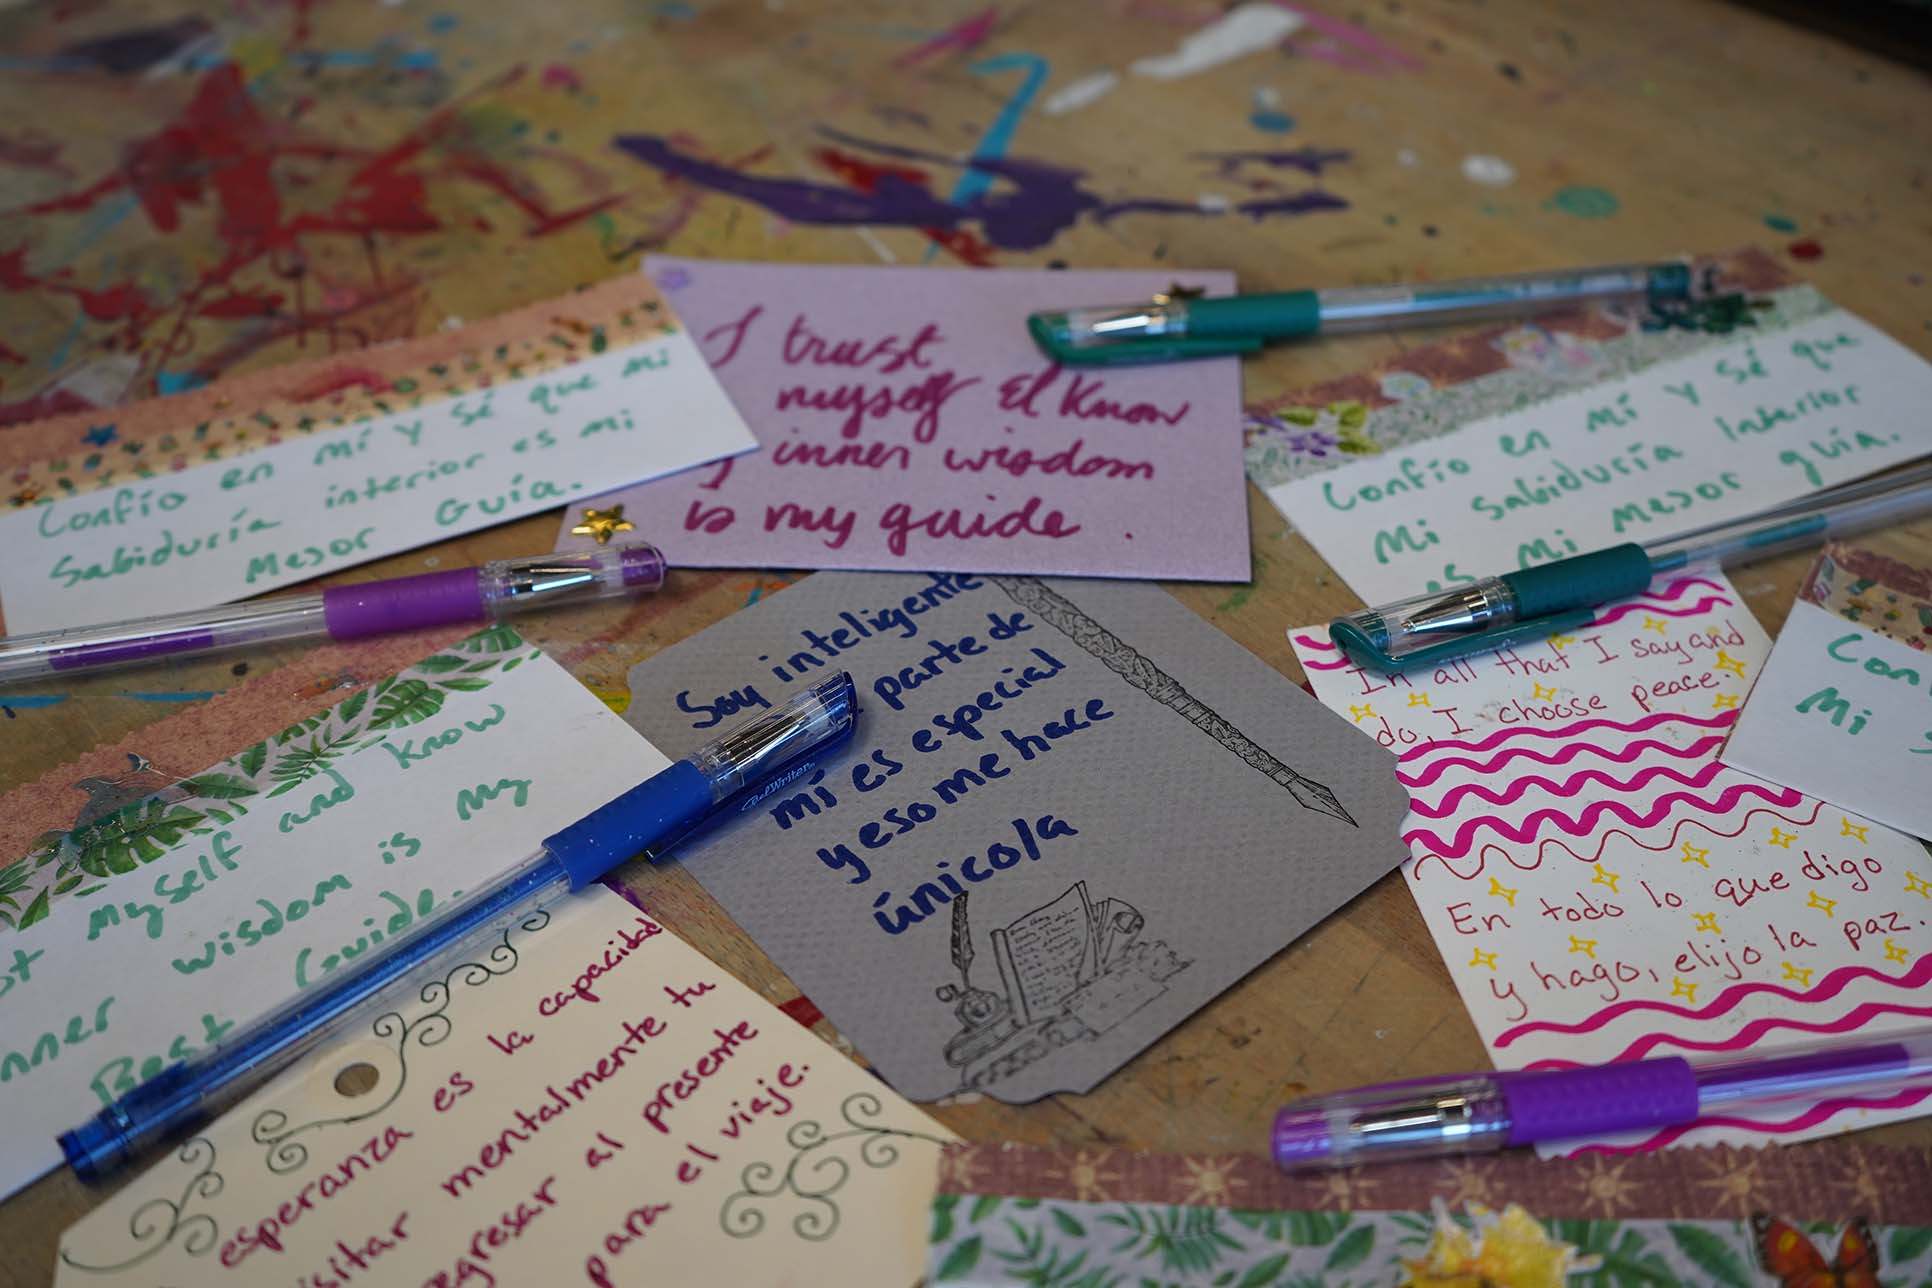 Confío en Mí Y Sé que Mi
Sabiduría interior es Mi
Mejor Guía.
I trust
myself & Know
inner wisdom
is my guide.
Confío en Mí Y Sé que
Mi Sabiduría Interior
es Mi Mejor guía.
Soy inteligente
parte de
mí es especial
y eso me hace
único/a
RelWriter
In all that I say and
do, I choose peace.
En todo lo que digo
y hago, elijo la paz.
Con
Mi
myself and know
wisdom is my
Best Guide.
esperanza es la capacidad
mentalmente tu
al presente
para el viaje.